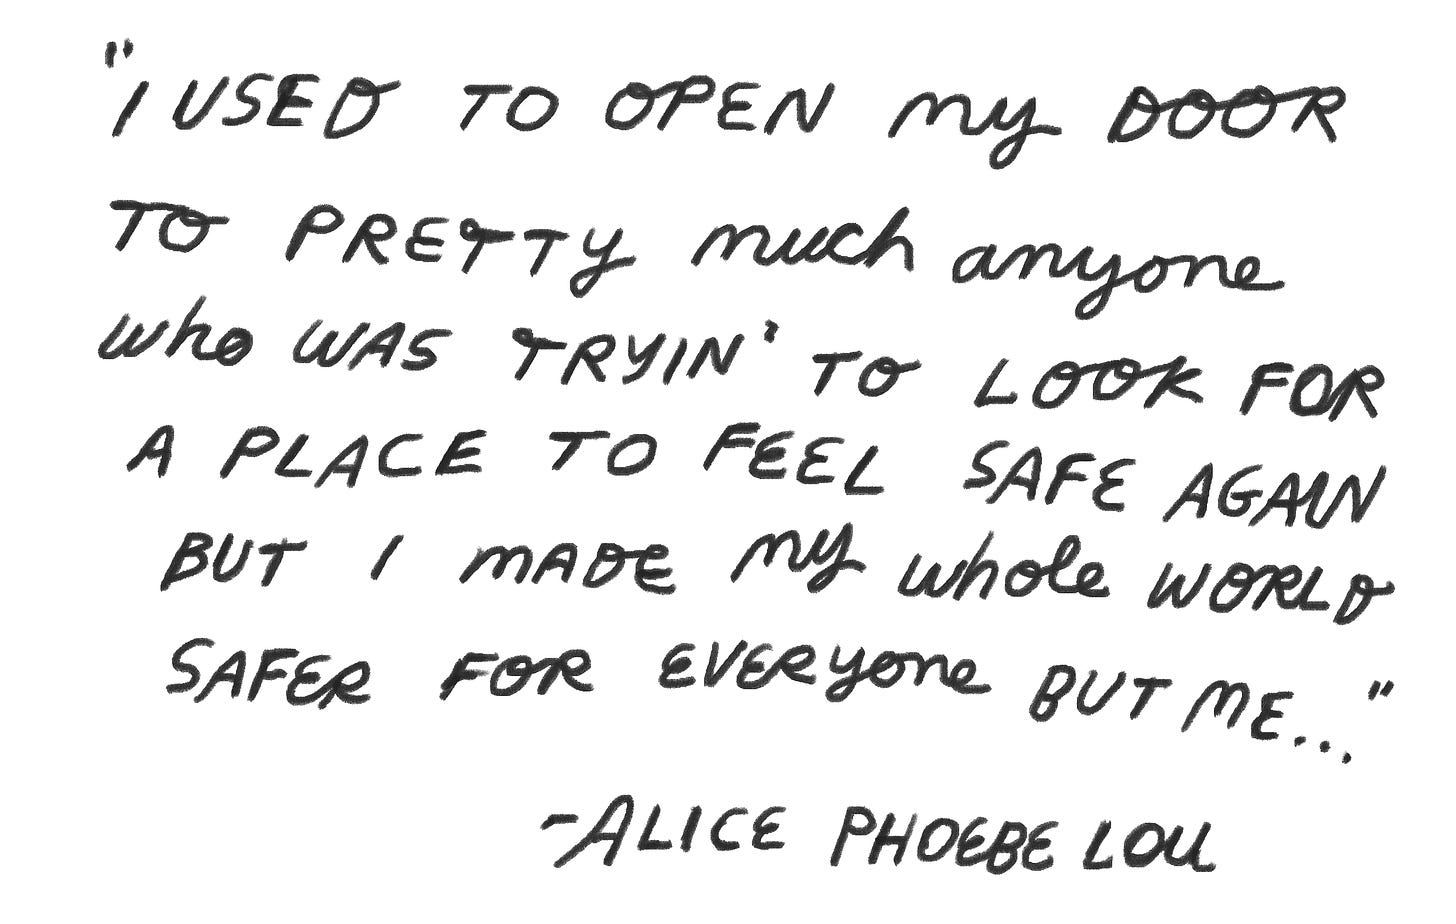 "I USED TO OPEN my DOOR
TO PRETTY much anyone
who WAS TRYIN' TO LOOK FOR
A PLACE TO FEEL SAFE AGAIN
BUT I MADE my whole WORLD
SAFER FOR EVERyone BUT ME..."
-ALICE PHOEBE LOU